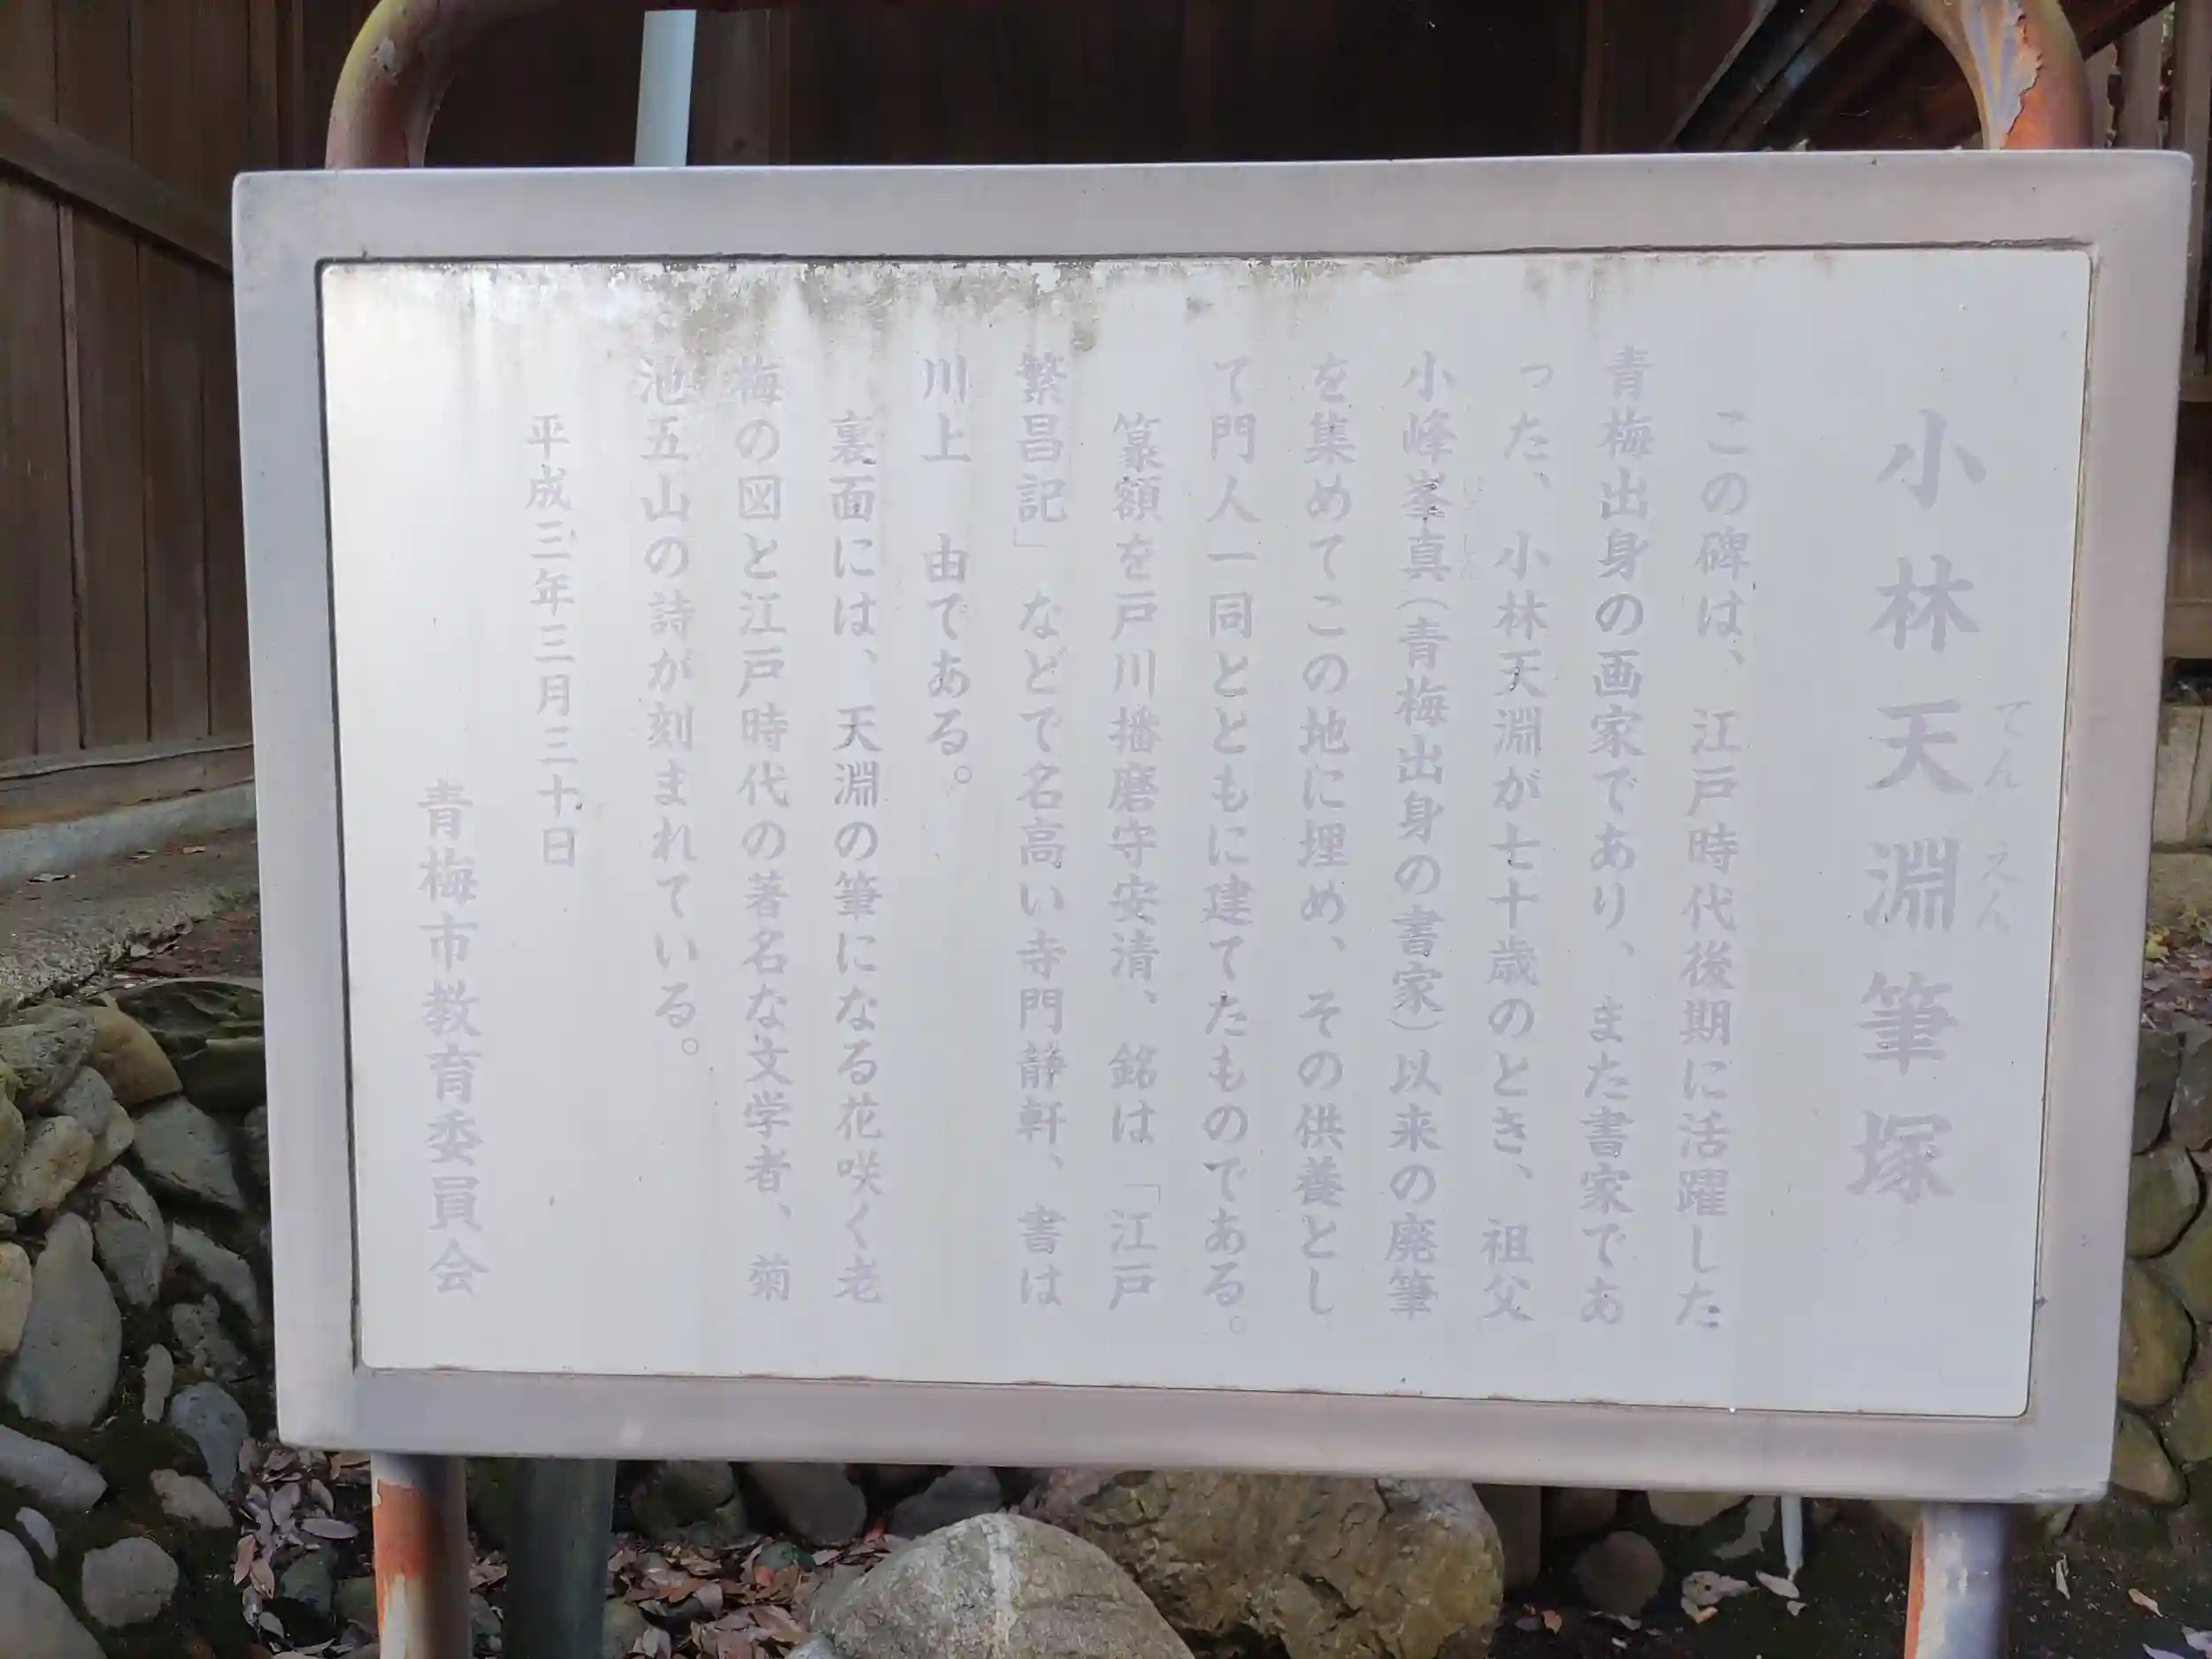 小林天淵筆塚
てんえん
この碑は、江戸時代後期に活躍した
青梅出身の画家であり、また書家であ
った、小林天淵が七十歳のとき、祖父
小峰峯真（青梅出身の書家）以来の廃筆
を集めてこの地に埋め、その供養とし
て門人一同とともに建てたものである。
篆額を戸川播磨守安清、銘は「江戸
繁昌記」などで名高い寺門静軒、書は
川上 由である。
裏面には、天淵の筆になる花咲く老
梅の図と江戸時代の著名な文学者、菊
池五山の詩が刻まれている。
平成三年三月三十日
青梅市教育委員会